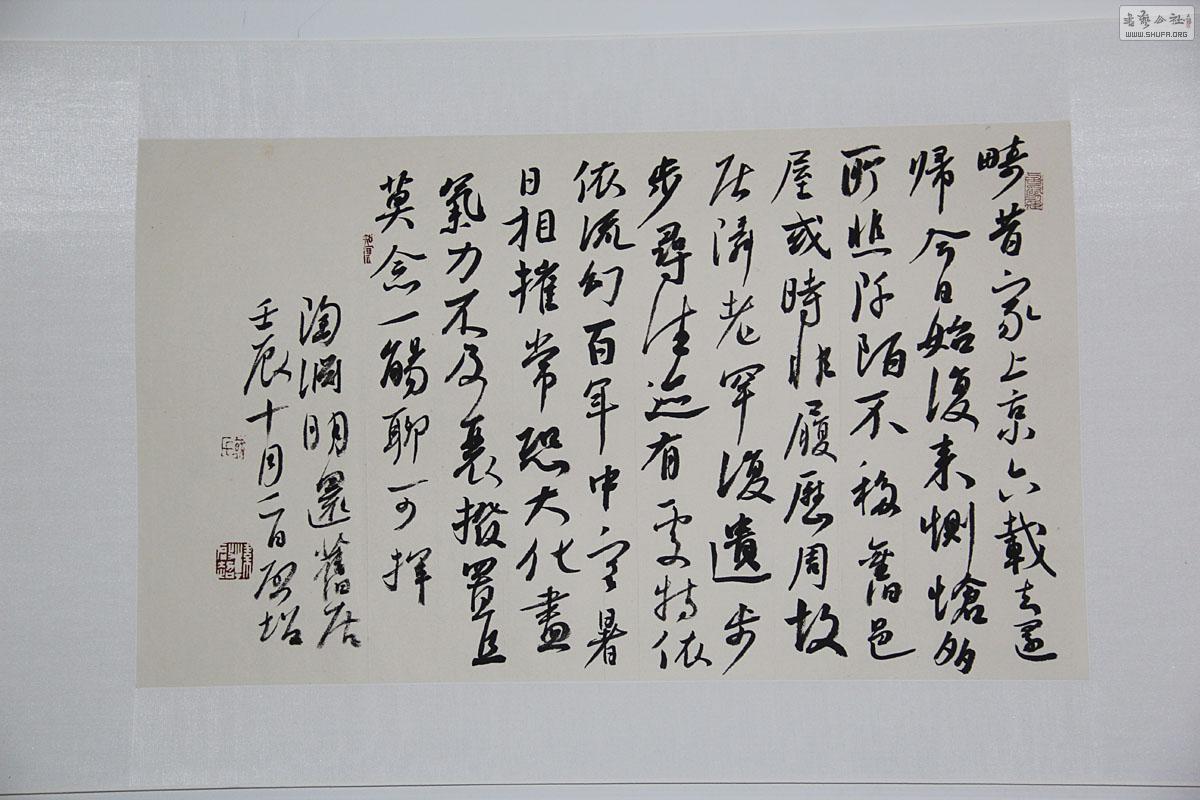 疇昔家上京六載去還
歸今日始復来惻愴多
所悲阡陌不移舊邑
屋或時非履歷周故
居隣老罕復遺步
步尋往迹有處特依
依流幻百年中寒暑
日相摧常恐大化盡
氣力不及衰撥置且
莫念一觴聊可揮
陶淵明還舊居
壬辰十月二日
書藝公社
WWW.SHUFA.ORG